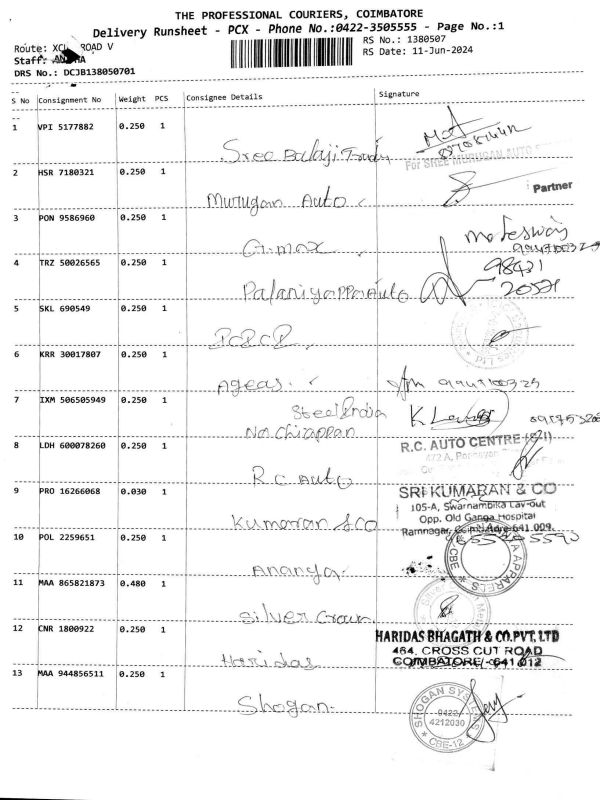 THE PROFESSIONAL COURIERS, COIMBATORE
Delivery Runsheet - PCX - Phone No.:0422-3505555 - Page No.:1
Route: ROAD V
RS No.: 1380507
Staff:
RS Date: 11-Jun-2024
DRS No.: DCJB138050701
S No Consignment No Weight PCS Consignee Details Signature
1 VPI 5177882 0.250 1
Sree Balaji
For SREE MURUGAN AUTO
2 HSR 7180321 0.250 1
Partner
Murugan Auto
3 PON 9586960 0.250 1
G-max
4 TRZ 50026565 0.250 1
98421
20571
Palaniyappa Auto
5 SKL 690549 0.250 1
6 KRR 30017807 0.250 1
Ageas.
7 IXM 506505949 0.250 1
Steel India
8 LDH 600078260 0.250 1
R.C. AUTO CENTRE
472 A,
R.C Auto
9 PRO 16266068 0.030 1
SRI KUMARAN & CO
105-A, Swarnambika Lay-out
Opp. Old Ganga Hospital
Ramnagar, Coimbatore-641 009.
Kumaran & CO
10 POL 2259651 0.250 1
APPARELS
CBE
Ananya
11 MAA 865821873 0.480 1
Silver Crown
12 CNR 1800922 0.250 1
HARIDAS BHAGATH & CO.PVT. LTD
464, CROSS CUT ROAD
COIMBATORE - 641 012
Haridas
13 MAA 944856511 0.250 1
Shogan
SHOGAN SYSTEMS
0422
4212030
CBE-12